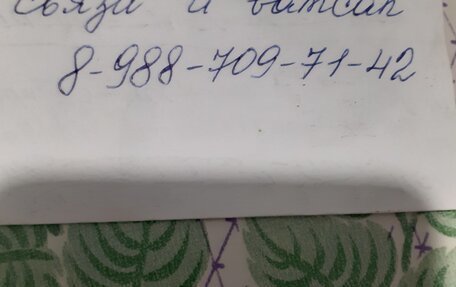 связи и ватсап
8-988-709-71-42